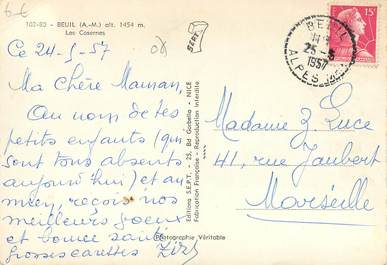 6-E
107-83 - BEUIL (A.-M.) alt. 1454 m.
Les Casernes
SEPT
Ce 24-5-57
Ma chère Maman,
Au nom de tes
petits enfants (qui
sont tous absents
aujourd'hui) et au
mien, reçois nos
meilleurs voeux
et bonne santé
grosses caresses
Editions S.E.P.T. - 25, Bd Gorbella - NICE
Fabrication Française - Reproduction Interdite
Photographie Véritable
BEUIL
25-5
1957
ALPES MMES
15F
Madame Z. Luce
41, rue Jaubert
Marseille